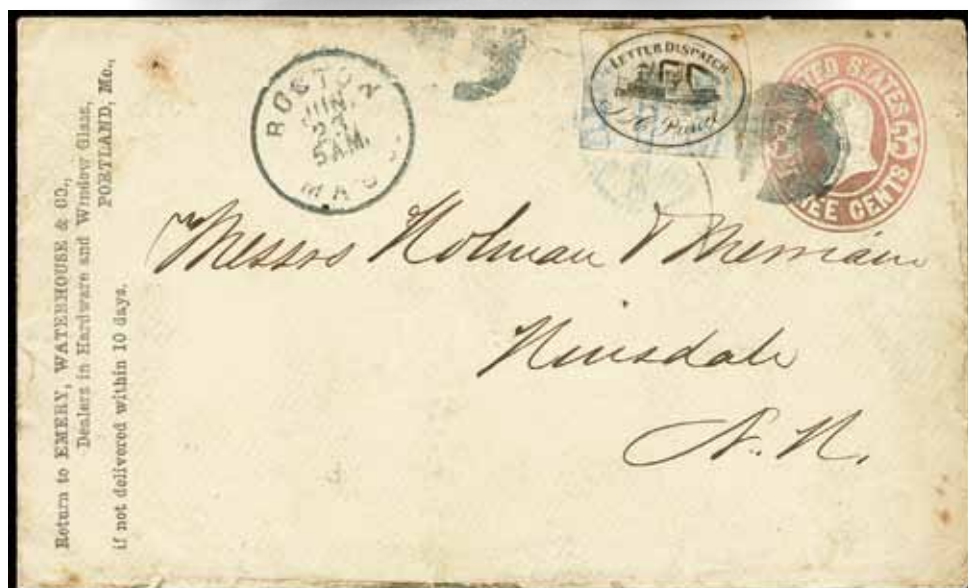 Return to EMERY, WATERHOUSE & CO.,
Dealers in Hardware and Window Glass,
PORTLAND, Me.,
if not delivered within 10 days.
BOSTON
JUN.
23
5 AM.
MAS
LETTER DISPATCH
UNITED STATES
THREE CENTS
3
Messrs Holman & Merriam
Hinsdale
N. H.